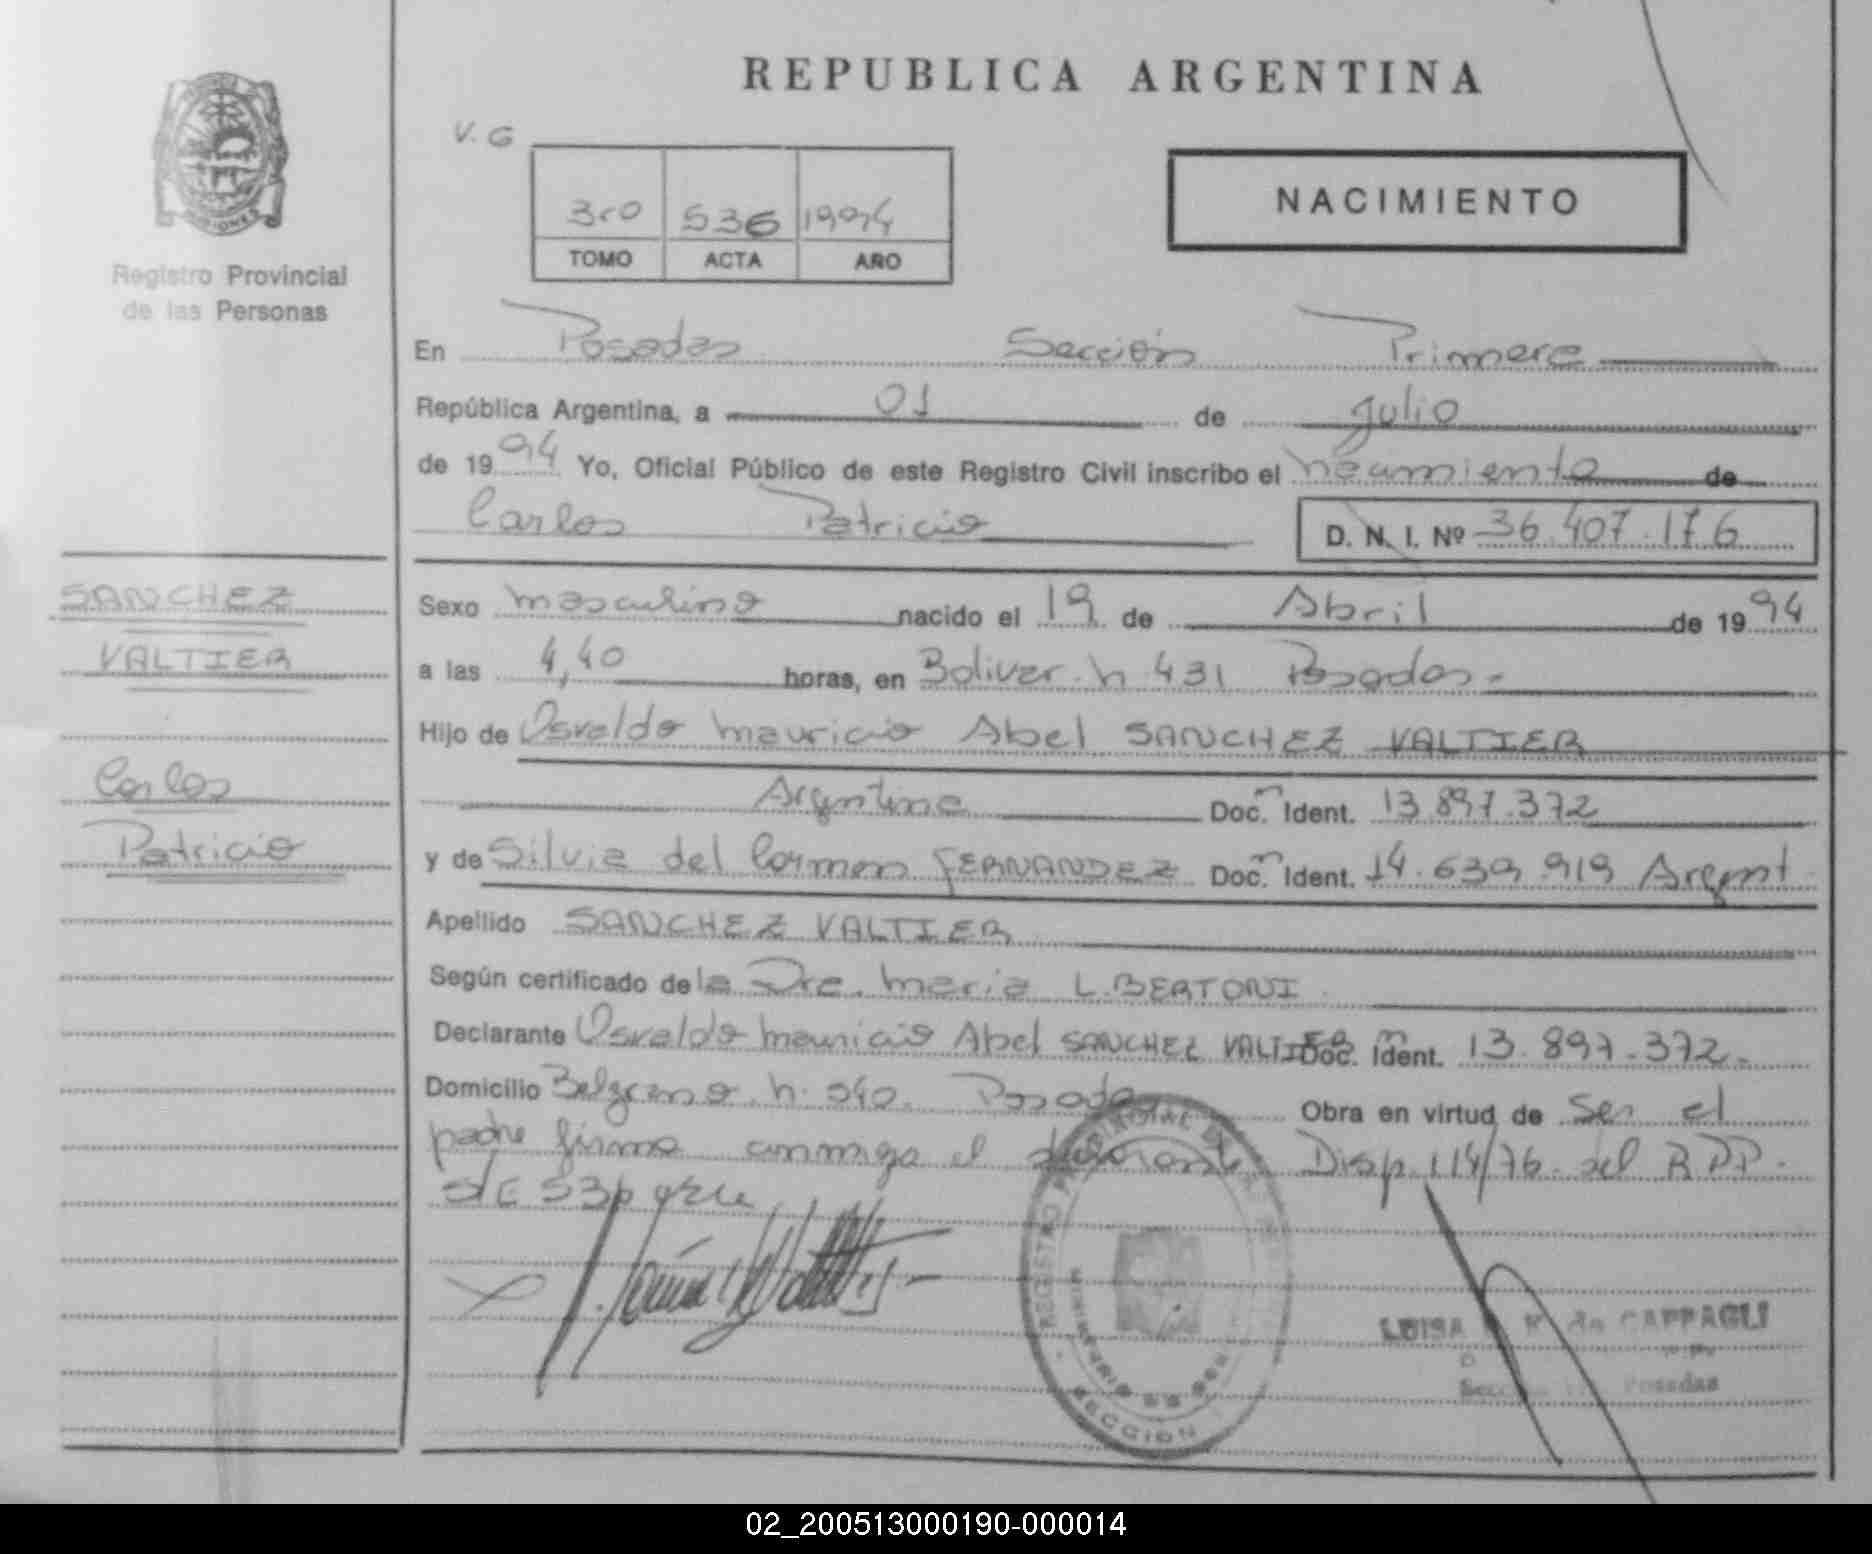 REPUBLICA ARGENTINA
V. G
NACIMIENTO
3ro 536 1994
TOMO ACTA AÑO
Registro Provincial
de las Personas
En Posadas Sección Primera
República Argentina, a 01 de Julio
de 1994 Yo, Oficial Público de este Registro Civil inscribo el nacimiento de
Carlos Patricio D. N. I. Nº 36.407.176
SANCHEZ
VALTIER
Carlos
Patricio
Sexo masculino nacido el 19 de Abril de 1994
a las 4,40 horas, en Bolivar n 431 Posadas.-
Hijo de Osvaldo Mauricio Abel SANCHEZ VALTIER
Argentina Doc. Ident. 13.897.372
y de Silvia del Carmen FERNANDEZ Doc. Ident. 14.639.919 Argent.
Apellido SANCHEZ VALTIER
Según certificado de la Dra. Maria L. BERTONI
Declarante Osvaldo Mauricio Abel SANCHEZ VALTIER Doc. Ident. 13.897.372.-
Domicilio Belgrano n. 540. Posadas Obra en virtud de Ser el
padre firma conmigo el declarante Disp. 114/76 del RPP.
REGISTRO PROVINCIAL DE
SECCION
LUISA de CAPPAGLI
Posadas
02_200513000190-000014